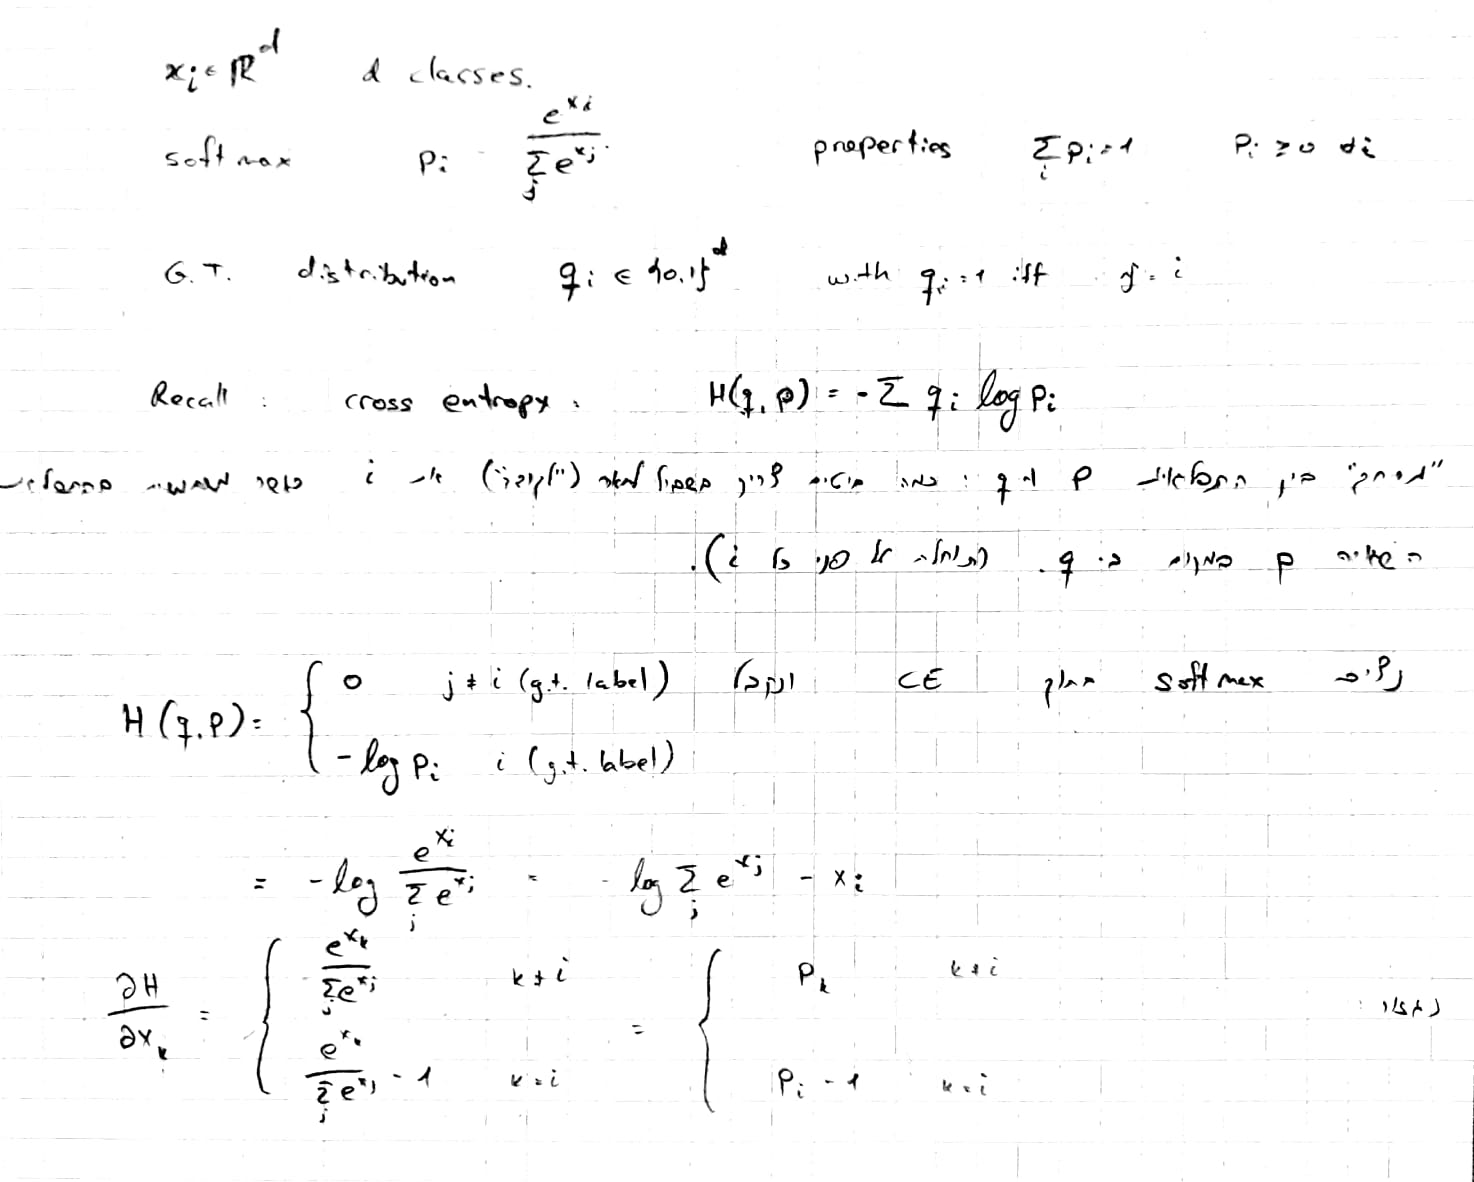 xᵢ ∈ ℝᵈ d classes.
softmax pᵢ = e^{xᵢ} / Σⱼ e^{xⱼ} properties Σᵢ pᵢ = 1 pᵢ ≥ 0 ∀i
G.T. distribution qᵢ ∈ {0,1}ᵈ with qᵢ = 1 iff y = i
Recall : cross entropy : H(q, p) = - Σ qᵢ log pᵢ
"מרחק" בין התפלגות p ו q : כמה ביטים צריך בשביל לתאר ("לקודד") את i כאשר משתמשים בהתפלגות
השגויה p במקום ב- q. (תוחלת על פני כל i).
נציב softmax בתוך CE ונקבל
H(q, p) = { 0 j ≠ i (g.t. label)
-log pᵢ i (g.t. label)
= -log e^{xᵢ} / Σⱼ e^{xⱼ} = log Σⱼ e^{xⱼ} - xᵢ
נגזור :
∂H/∂xₖ = { e^{xₖ} / Σⱼ e^{xⱼ} k ≠ i = { pₖ k ≠ i
e^{xₖ} / Σⱼ e^{xⱼ} - 1 k = i pᵢ - 1 k = i